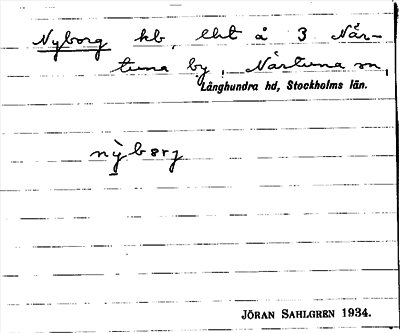 Nyborg kb, lht å 3 När-
tuna by, Närtuna sn,
Långhundra hd, Stockholms län.
nỳbərj
JÖRAN SAHLGREN 1934.